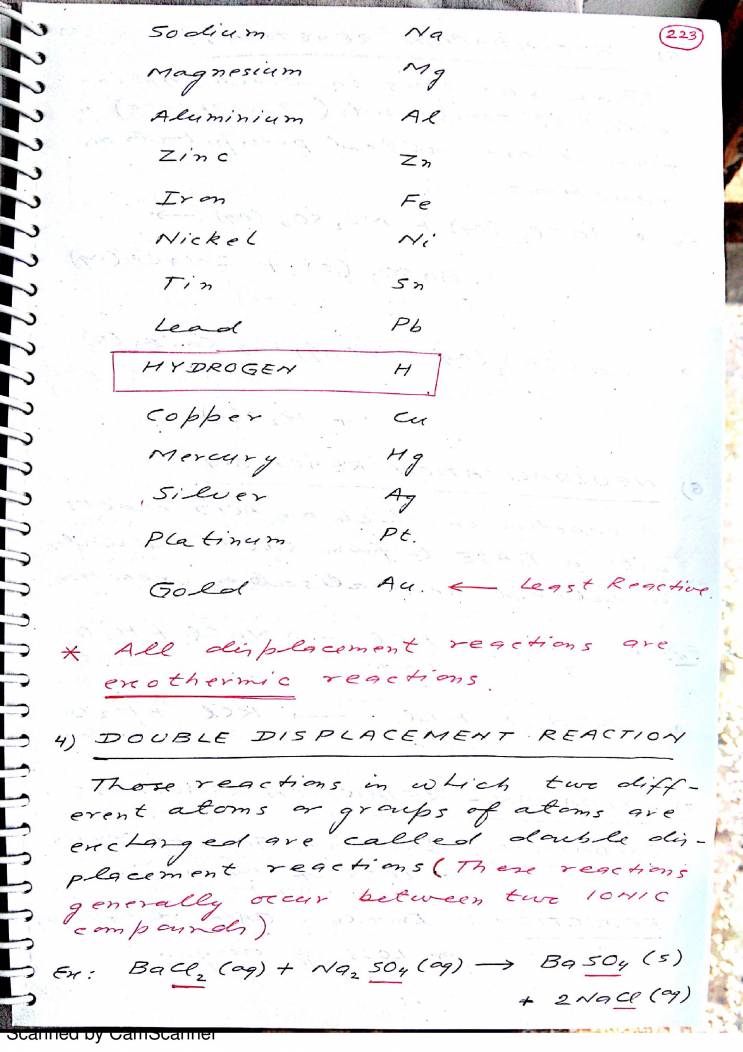 Sodium Na
223
Magnesium Mg
Aluminium Al
Zinc Zn
Iron Fe
Nickel Ni
Tin Sn
Lead Pb
HYDROGEN H
Copper Cu
Mercury Hg
Silver Ag
Platinum Pt.
Gold Au. ← Least Reactive
* All displacement reactions are
exothermic reactions.
4) DOUBLE DISPLACEMENT REACTION
Those reactions in which two diff-
erent atoms or groups of atoms are
exchanged are called double dis-
placement reactions (These reactions
generally occur between two IONIC
compounds)
Ex: BaCl₂ (aq) + Na₂SO₄ (aq) → BaSO₄ (s)
+ 2NaCl (aq)
Scanned by CamScanner